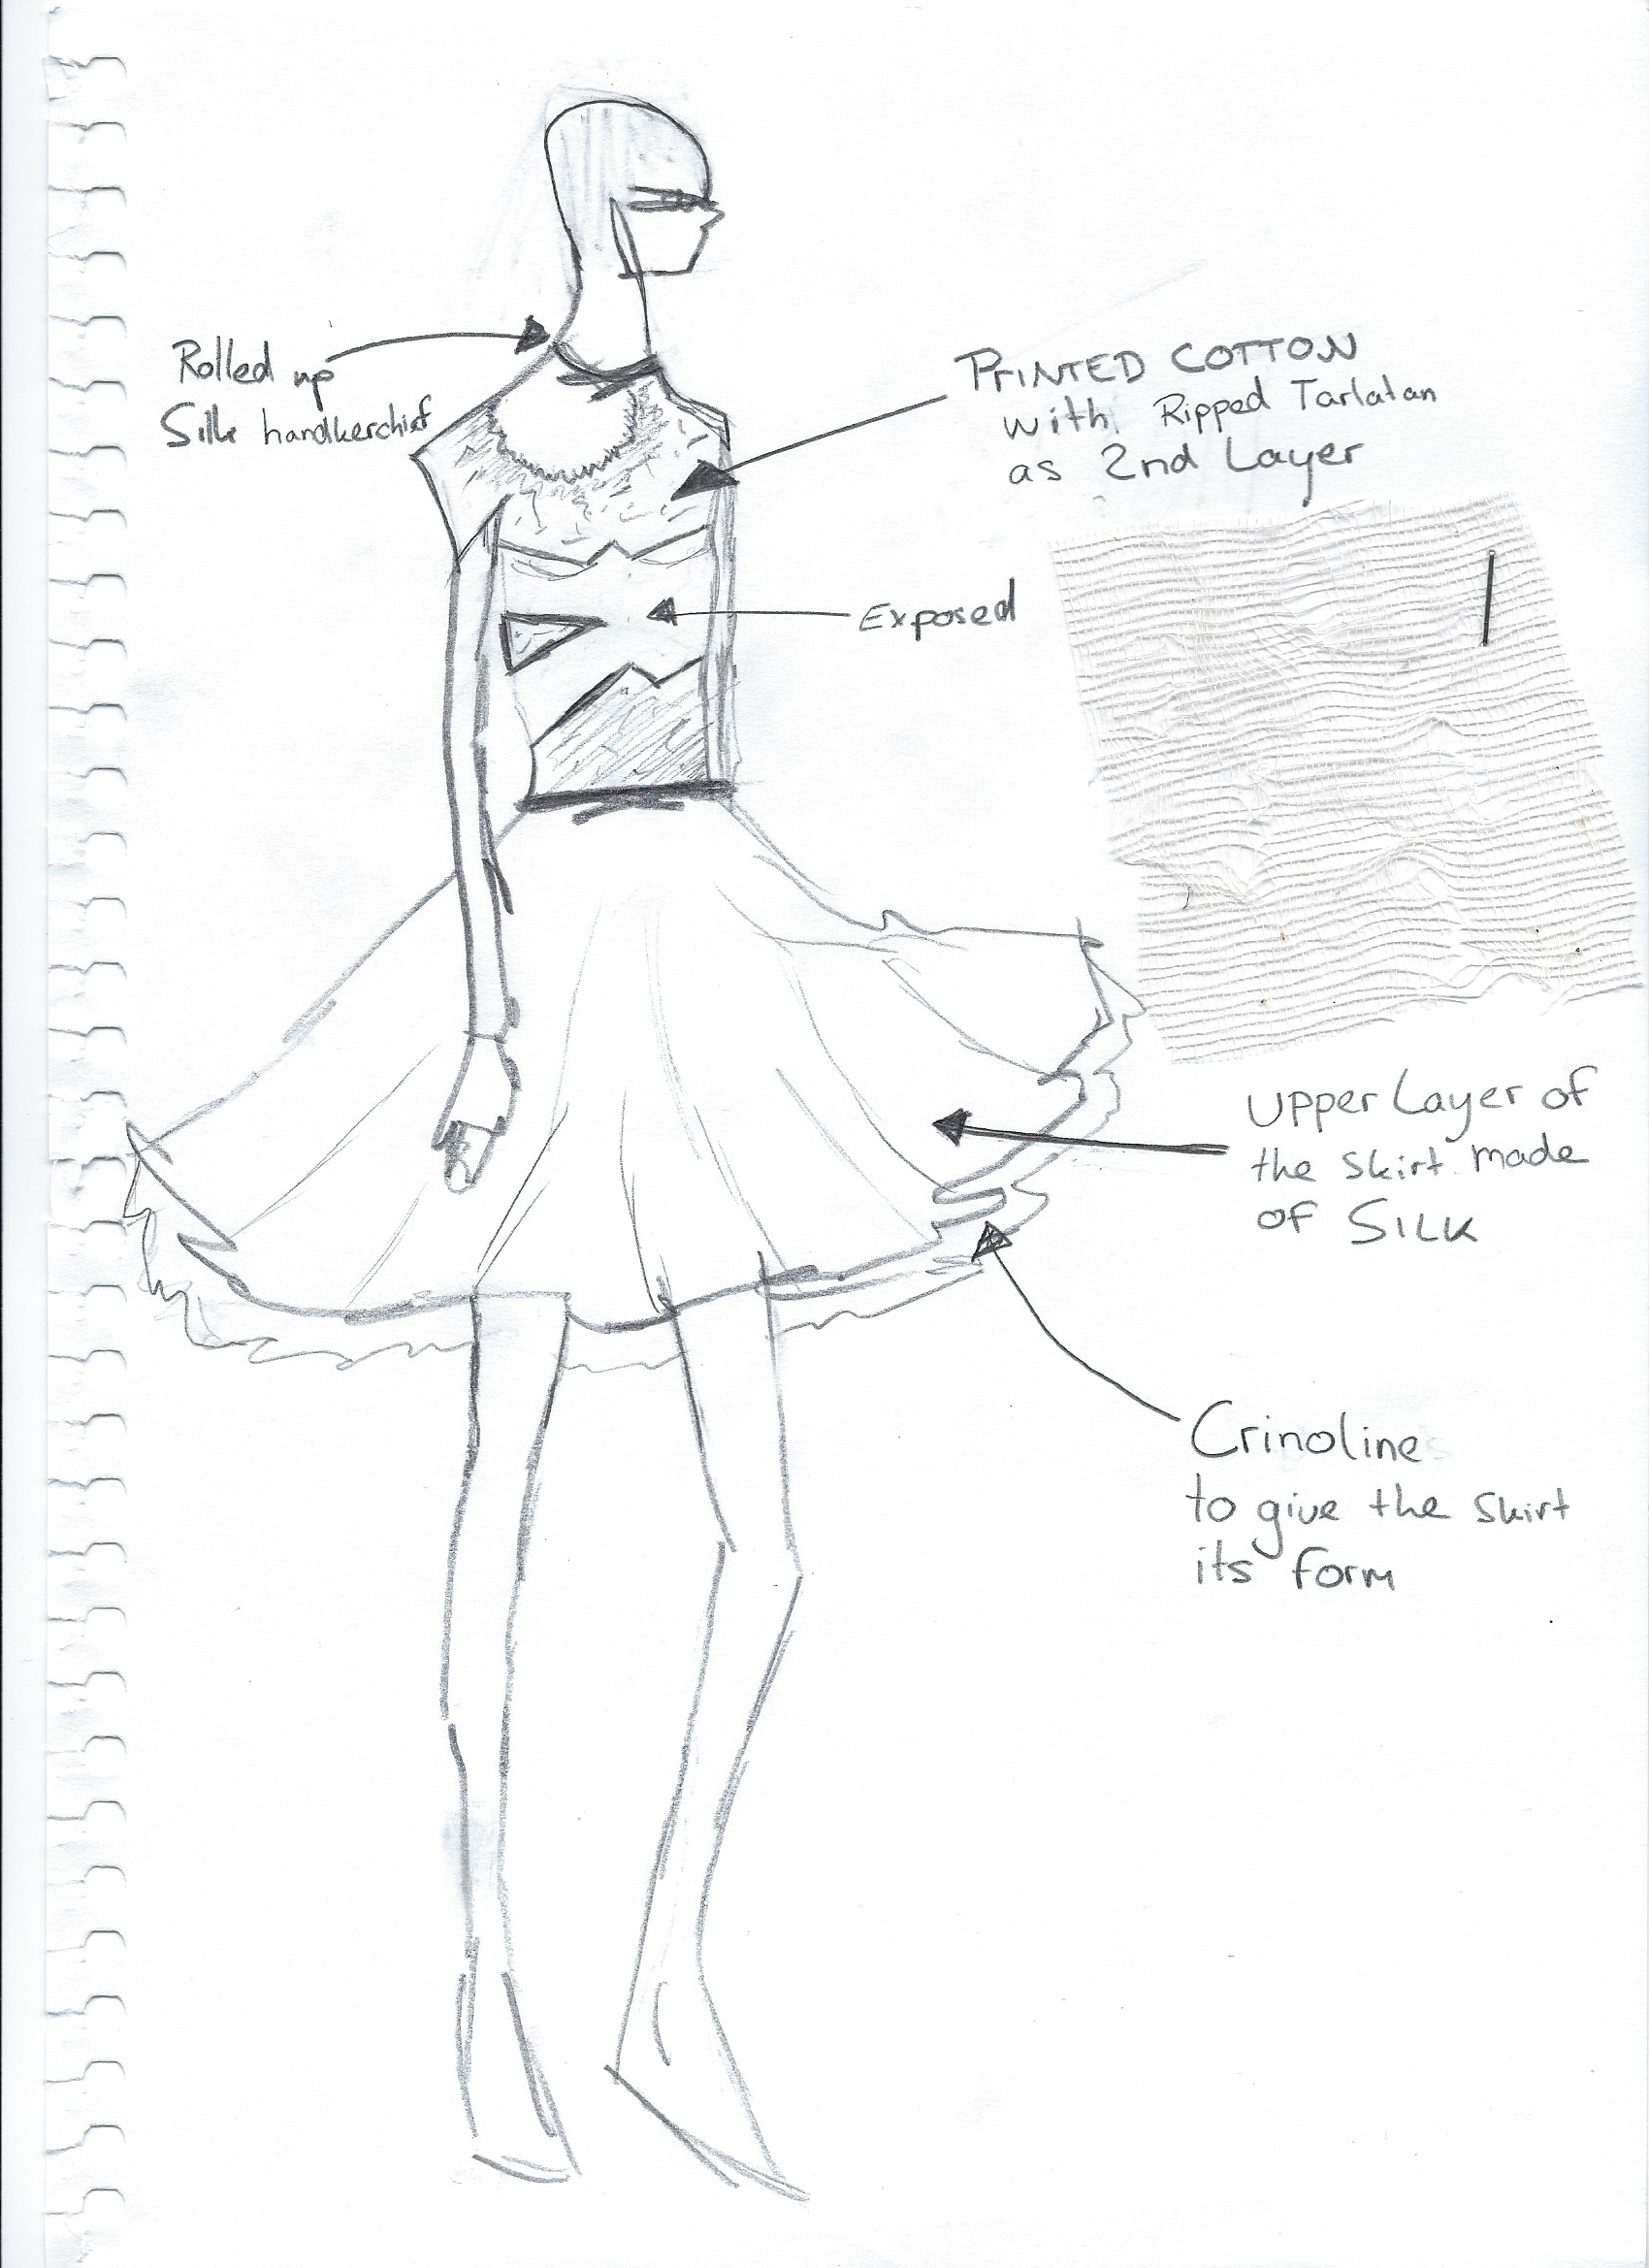 Rolled up
Silk handkerchief
PrINTED COTTON
with Ripped Tarlatan
as 2nd Layer
Exposed
Upper Layer of
the skirt made
of SILK
Crinoline
to give the skirt
its form